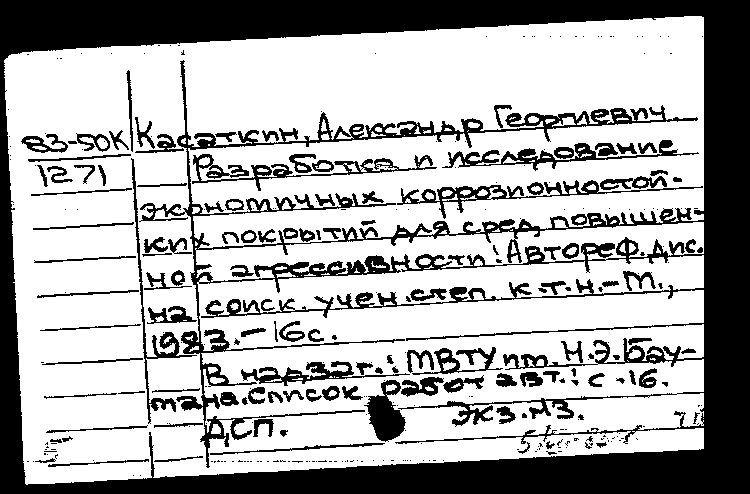 83-50К Касаткин, Александр Георгиевич
1271 Разработка и исследование
экономичных коррозионностой-
ких покрытий для сред, повышен-
ной агрессивности: Автореф. дис.
на соиск. учен. степ. к.т.н. - М.,
1983. - 16 с.
В надзаг.: МВТУ им. Н.Э. Бау-
мана. Список работ авт.: с. 16.
ДСП. Экз. N3.